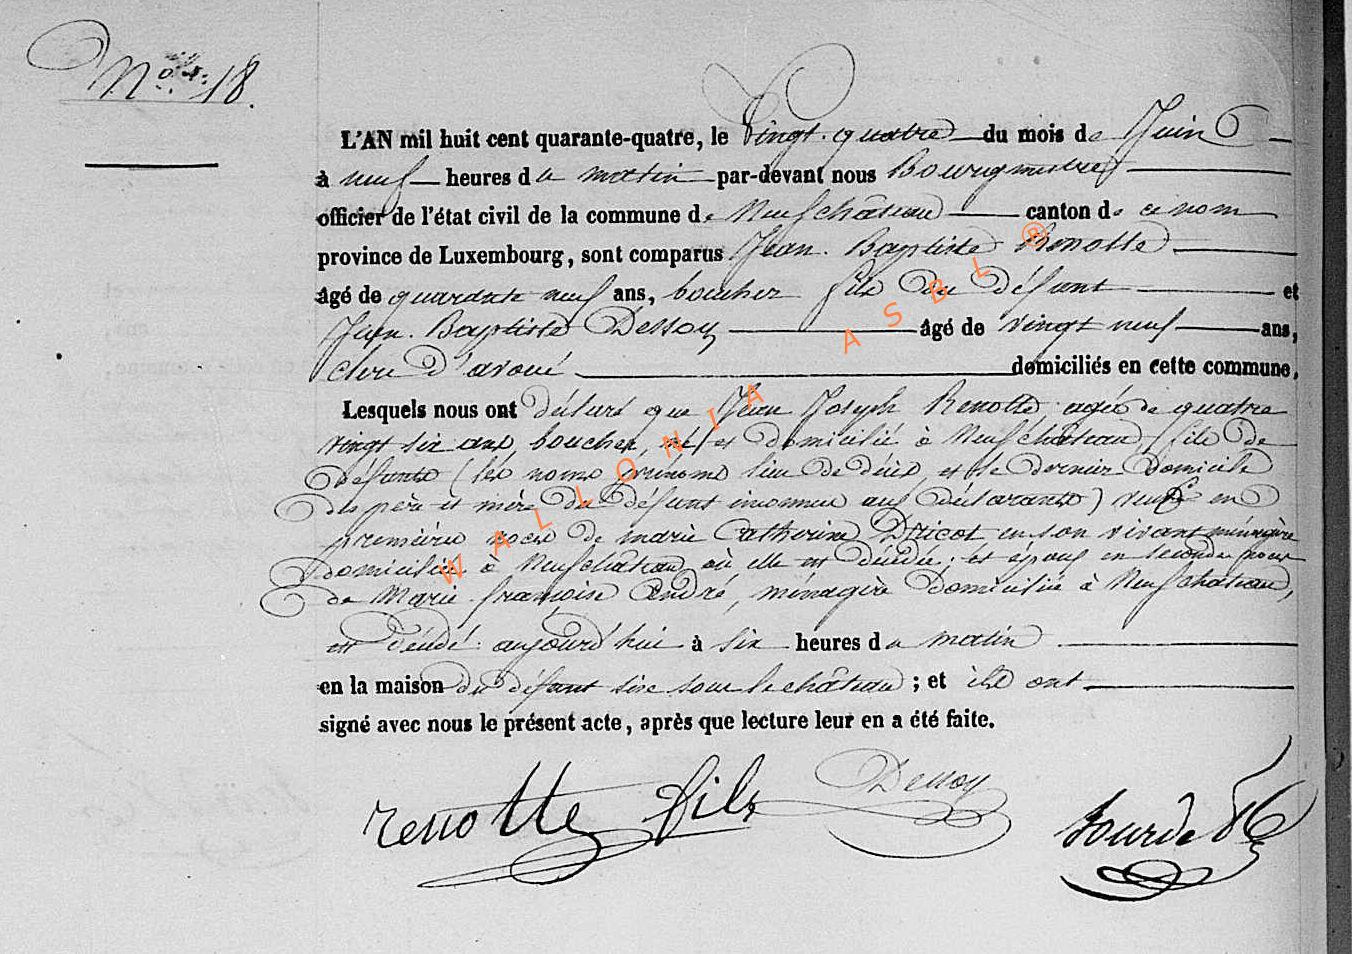 N° 18.
L'AN mil huit cent quarante-quatre, le Vingt-quatre du mois de Juin
à neuf heures du matin par-devant nous Bourgmestre
officier de l'état civil de la commune de Neufchâteau canton de ce nom
province de Luxembourg, sont comparus Jean-Baptiste Renotte
âgé de quarante neuf ans, boucher fils du défunt et
Jean-Baptiste Dessoy âgé de vingt neuf ans,
clerc d'avoué domiciliés en cette commune,
Lesquels nous ont déclaré que Jean Joseph Renotte agé de quatre
vingt six ans boucher, né et domicilié à Neufchâteau, fils de
défunts (les noms prénoms lieu de décès et le dernier domicile
des père et mère du défunt inconnus aux déclarants) veuf en
premières noces de marie Catherine Dricot en son vivant ménagère
domiciliée à Neufchâteau où elle est décédée; et époux en secondes noces
de Marie françoise André, ménagère domiciliée à Neufchâteau,
est décédé aujourd'hui à six heures du matin
en la maison du défunt sise sous le château; et ils ont
signé avec nous le présent acte, après que lecture leur en a été faite.
renotte fils Dessoy
WALLONIA ASBL ®